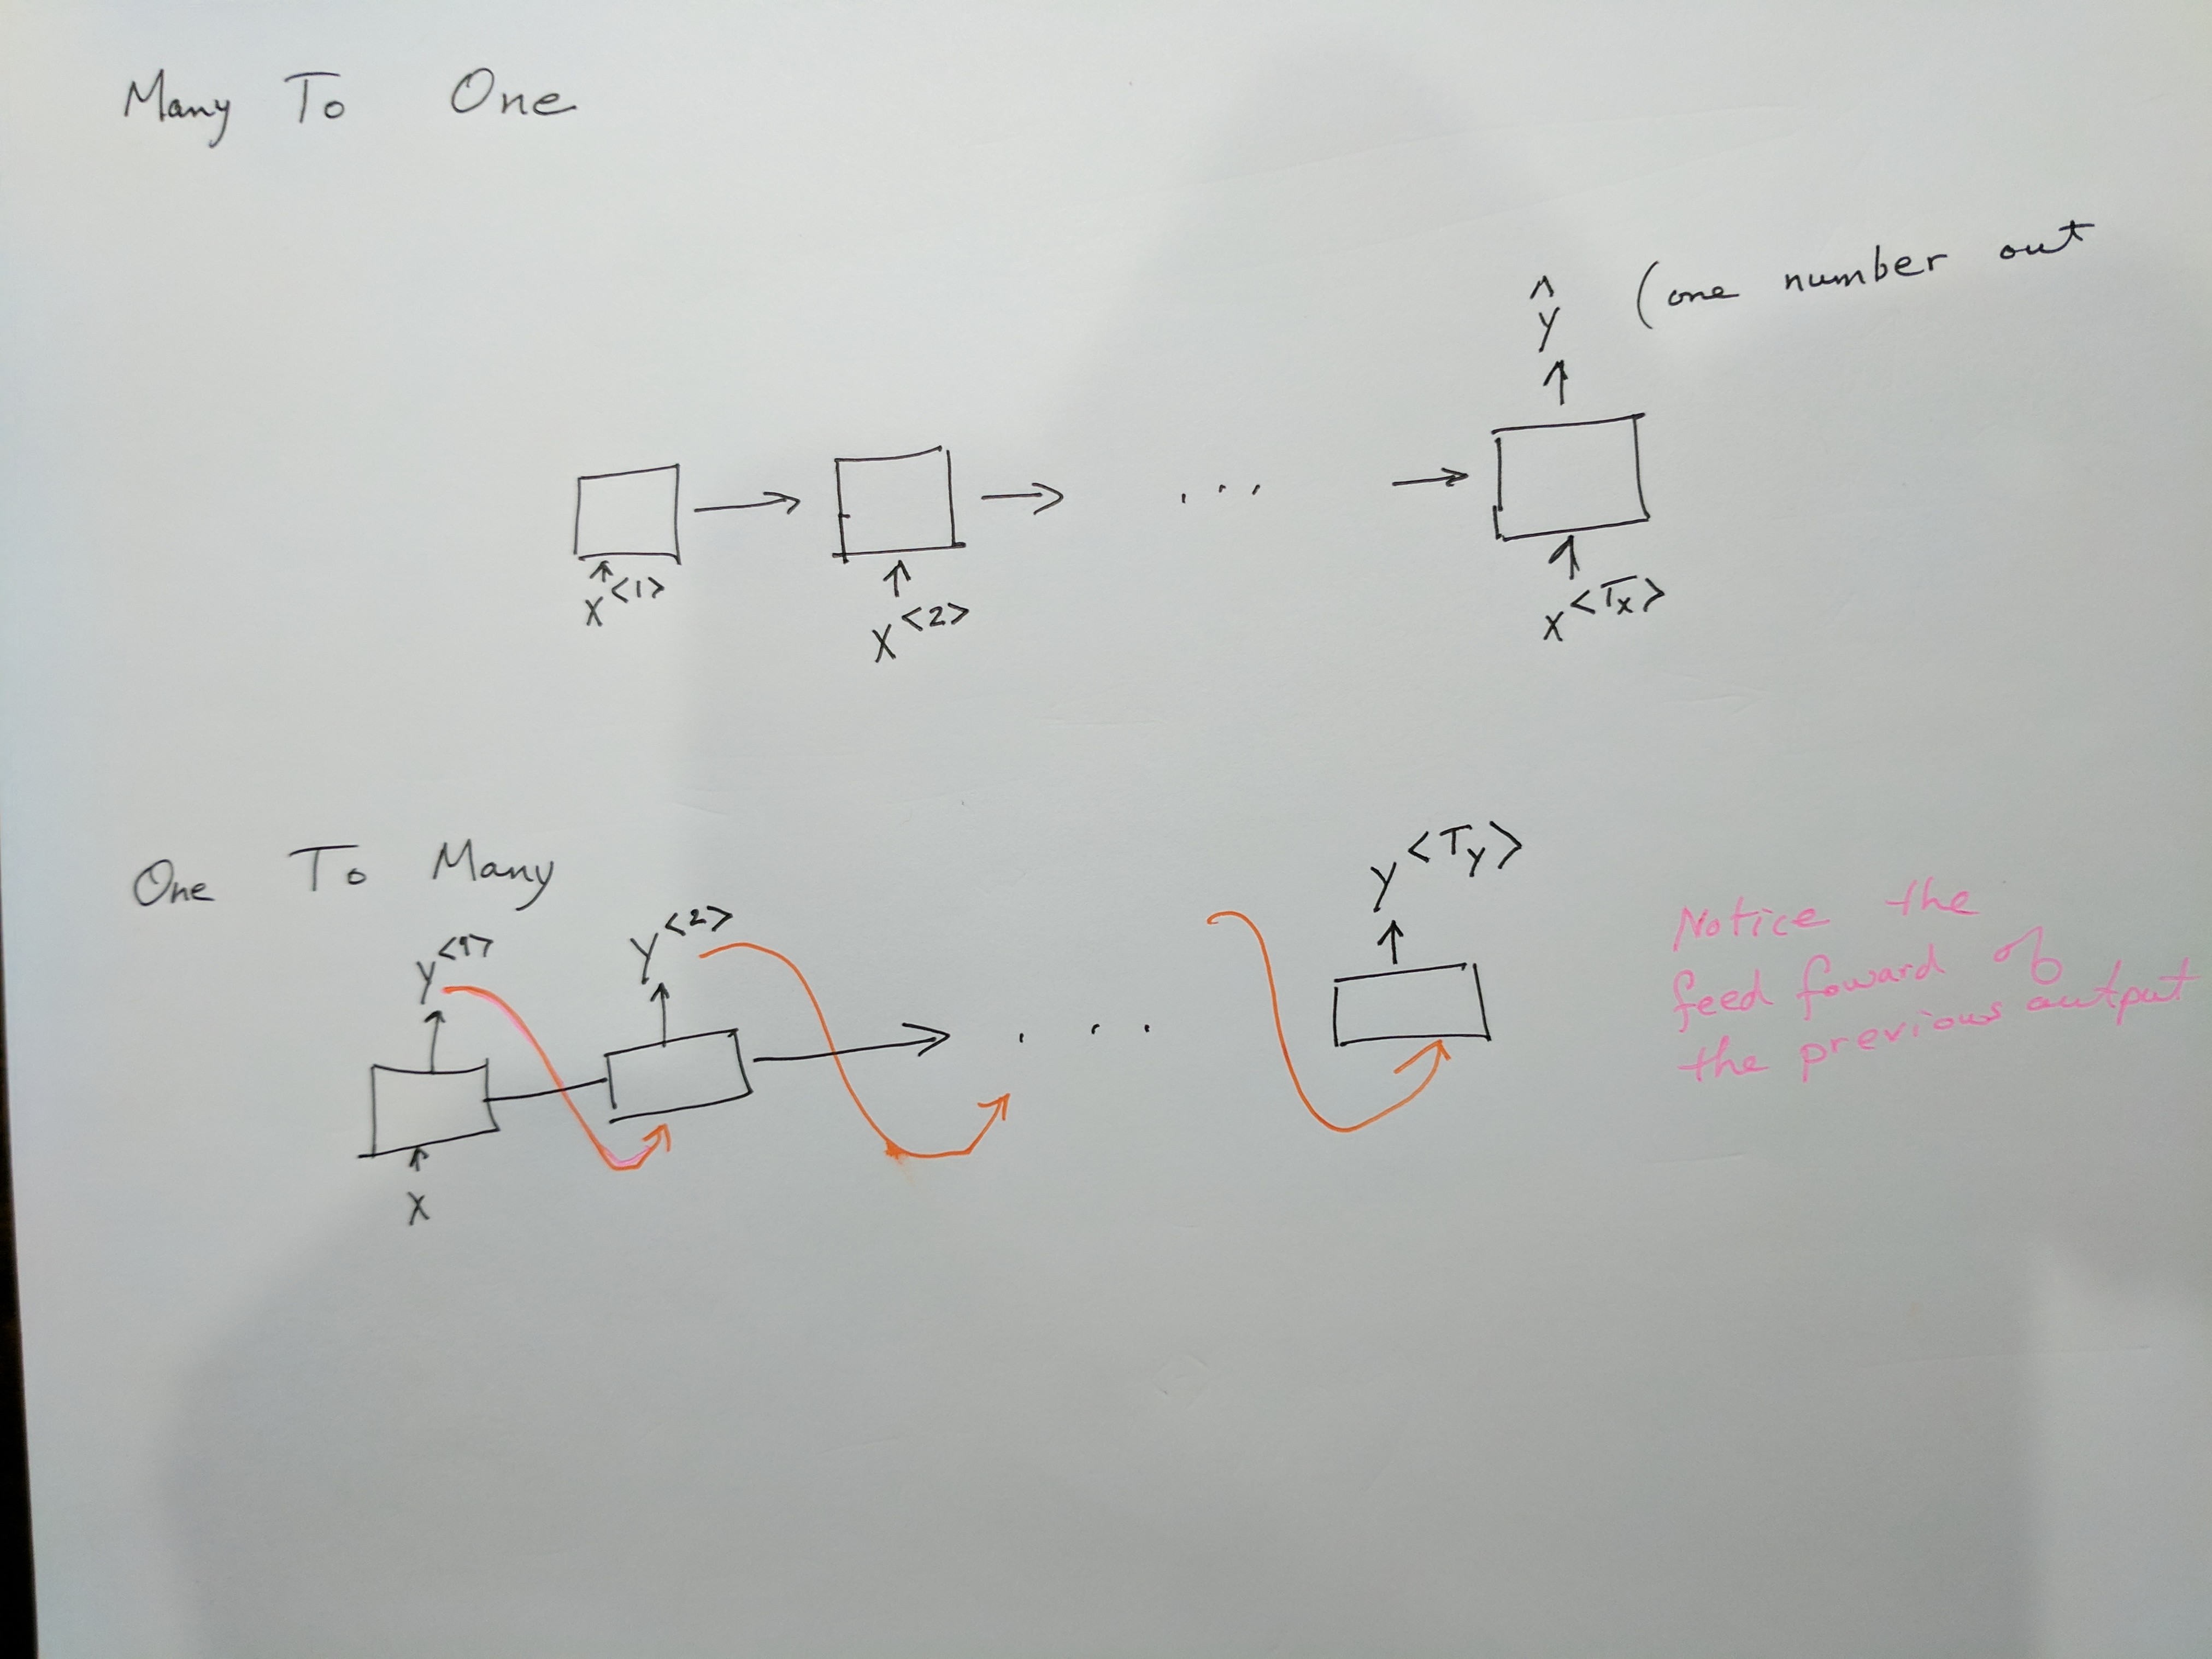 Many To One
ŷ (one number out
x<1>
x<2>
x<Tx>
One To Many
y<1>
y<2>
y<Ty>
x
Notice the
feed foward of
the previous output